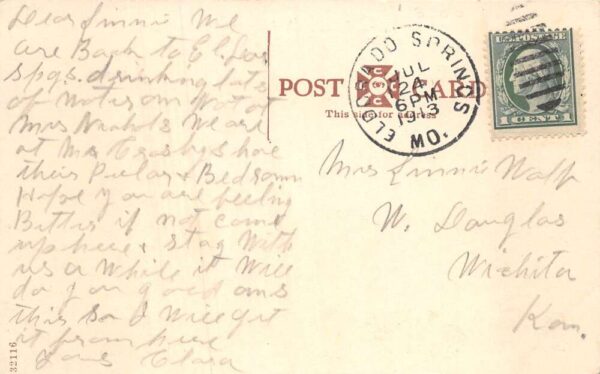 Dear Linnie We
are Back to El. Dor
Spgs. drinking lots
of Not at
Mrs Nichols We are
at Mrs Crosbys have
their Parlor & Bedroom
Hope you are feeling
Better if not come
up here & stay With
us a While it Will
do you good ans
this so I Will get
it from here
Love Clara
32116
POST CARD
This side for address
EL DORADO SPRINGS
JUL
24
6 PM
1913
MO.
U.S. POSTAGE
1 CENT 1
Mrs Linnie Wolf
W. Douglas
Wichita
Kan.